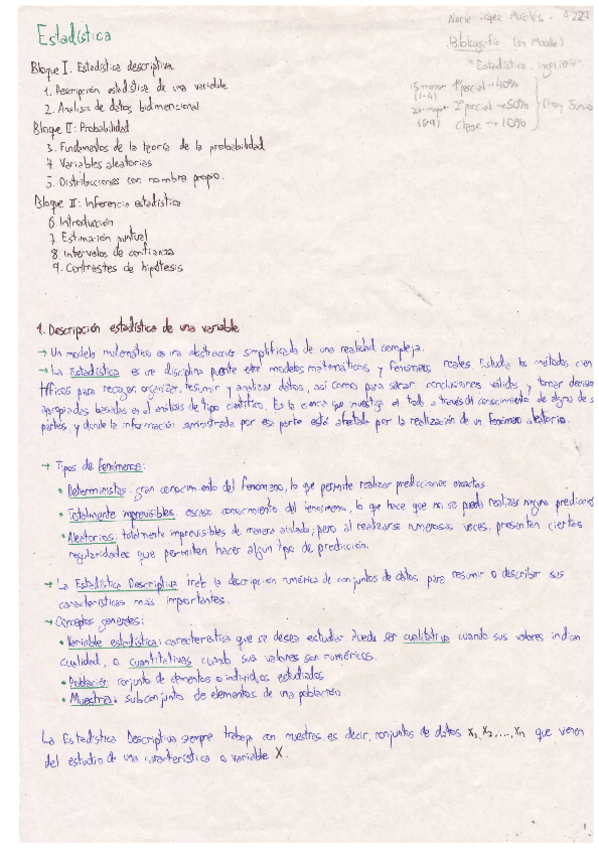 Estadística
Bibliografía (en Moodle)
"Estadística
Bloque I. Estadística descriptiva
1. Descripción estadística de una variable
2. Analisis de datos bidimensional
Bloque II: Probabilidad
3. Fundamentos de la teoría de la probabilidad
4. Variables aleatorias
5. Distribuciones con nombre propio.
Bloque III: Inferencia estadística
6. Introducción
7. Estimación puntual
8. Intervalos de confianza
9. Contrastes de hipótesis
1º parcial → 40%
(1-4)
2º parcial → 50%
(5-9)
clase → 10%
Junio
1. Descripción estadística de una variable
→ Un modelo matemático es una abstracción simplificada de una realidad compleja.
→ La Estadística es una disciplina puente entre modelos matemáticos y fenómenos reales. Estudia los métodos cien
tíficos para recoger, organizar, resumir y analizar datos, así como para sacar conclusiones validas, y tomar decision
apropiadas basadas en el análisis de tipo científico. Es la ciencia que investiga el todo a través del conocimiento de alguna de s
partes, y donde la información suministrada por esa parte está afectada por la realización de un fenómeno aleatorio.
→ Tipos de fenómenos:
• Deterministas: gran conocimiento del fenómeno, lo que permite realizar predicciones exactas
• Totalmente imprevisibles: escaso conocimiento del fenómeno, lo que hace que no se pueda realizar ninguna predicción
• Aleatorios: totalmente imprevisibles de manera aislada; pero al realizarse numerosas veces, presentan ciertas
regularidades que permiten hacer algun tipo de predicción.
→ La Estadística Descriptiva trata la descripción numérica de conjuntos de datos, para resumir o describir sus
características más importantes.
→ Conceptos generales:
• Variable estadística: característica que se desea estudiar. Puede ser cualitativa cuando sus valores indican
cualidad, o cuantitativas cuando sus valores son numéricos.
• Población: conjunto de elementos o individuos estudiados
• Muestra: subconjunto de elementos de una población.
La Estadística Descriptiva siempre trabaja con muestras, es decir, conjuntos de datos x₁, x₂, ..., xₙ que vienen
del estudio de una característica o variable X.
1